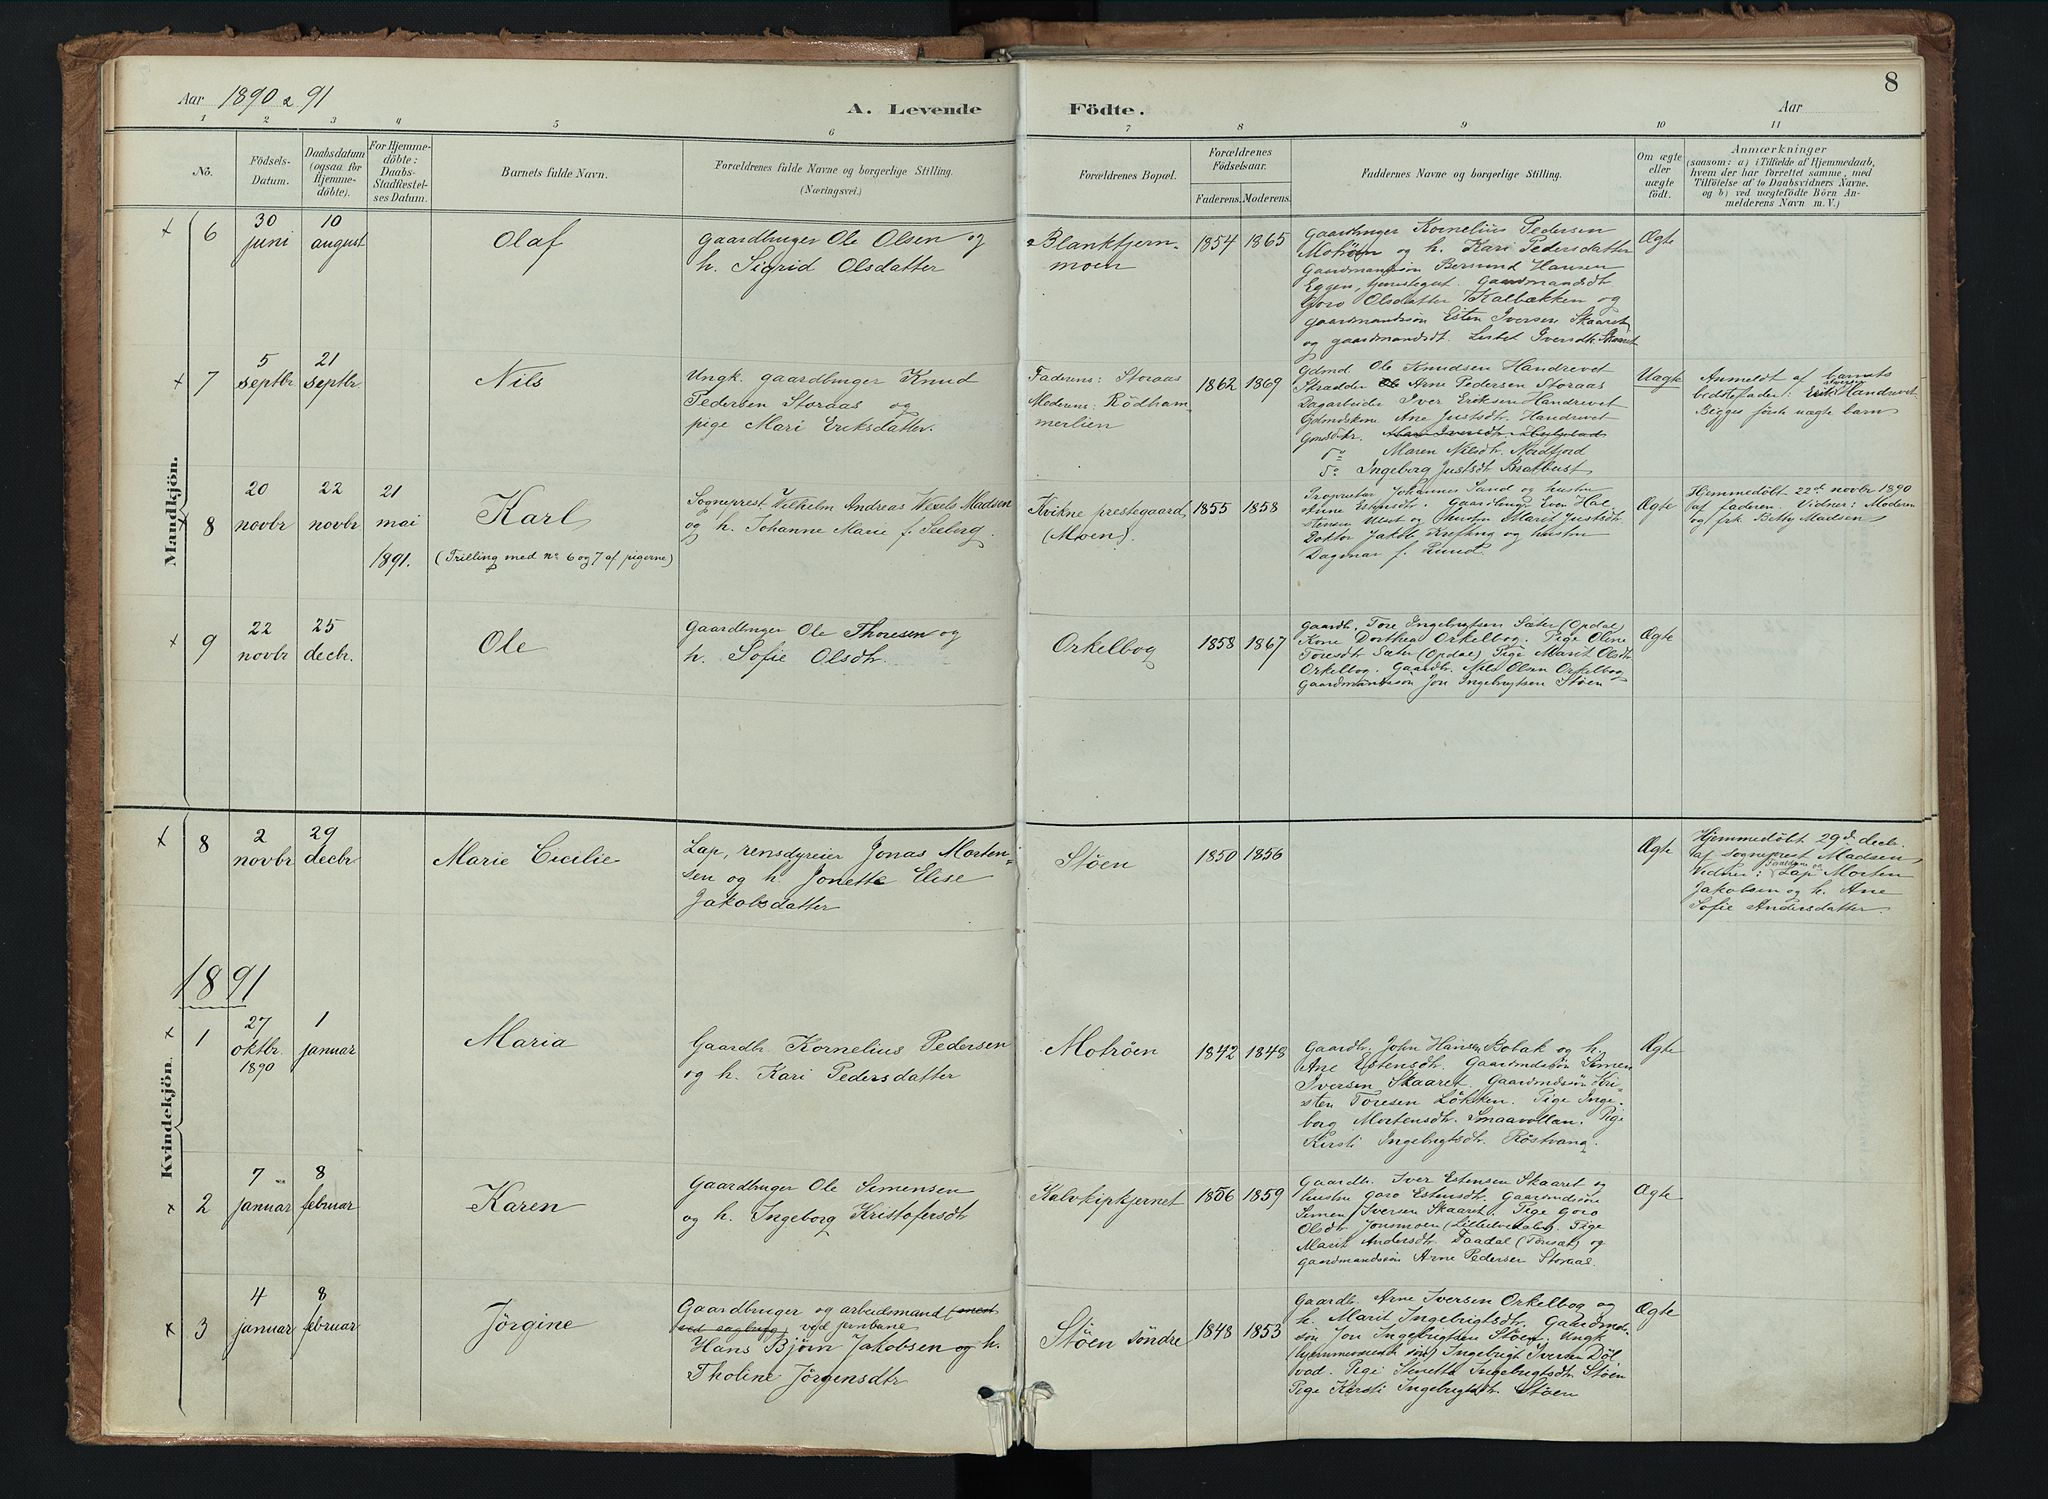 8
Aar 1890 & 91
A. Levende Födte.
Aar
1 2 3 4 5 6 7 8 9 10 11
No.
Födsels-
Datum.
Daabsdatum
(ogsaa for
Hjemme-
döbte).
For Hjemme-
döbte:
Daabs-
Stadfestel-
ses Datum.
Barnets fulde Navn.
Forældrenes fulde Navne og borgerlige Stilling.
(Næringsvei.)
Forældrenes Bopæl.
Forældrenes
Födselsaar.
Faderens. Moderens.
Faddernes Navne og borgerlige Stilling.
Om ægte
eller
uægte
födt.
Anmærkninger
(saasom: a) i Tilfælde af Hjemmedaab,
hvem der har forrettet samme, med
Tilföielse af to Daabsvidners Navne.
og b) ved uægtefödte Börn An-
melderens Navn m. V.)
Mandkjön.
6
30
juni
10
august
Olaf
Gaardbruger Ole Olsen og
h. Sigrid Olsdatter
Blanktjern-
moen
1854 1865
Gaardbruger Kornelius Pedersen
Motrøen og h. Kari Pedersdatter
Gaardmandssøn Bersund Hansen
Eggen, Gaardmandsdt.
Goro Olsdatter Kalbækken og
gaardmandssøn Esten Iversen Skaaret
og gaardmandsdt. Lisbet Iversdtr. Skaaret
Ægte
7
5
septbr
21
septbr
Nils
Ungk. gaardbruger Knud
Pedersen Storaas og
pige Mari Eriksdatter.
Faderens: Storaas
Moderens: Rödham-
merlien
1862 1869
Gdmd Ole Knudsen Handrevet
Skrædder Arne Pedersen Storaas
Dagarbeider Iver Eriksen Handrevet
Gdmdskone Ane Justsdtr. Handrevet
Gmdsdtr.
do Maren Nilsdtr. Nordfjord
do Ingeborg Justsdtr Bratbust
Uægte
Anmeldt af barnets
bedstefader: Erik Iversen Handrevet
Begges første uægte barn
8
20
novbr
22
novbr
21
mai
1891.
Karl
(Trilling med no 6 og 7 af pigerne)
Sogneprest Wilhelm Andreas Wexels Madsen
og h. Johanne Marie f. Seeberg.
Kvikne prestegaard
(Moen).
1855 1858
Proprietær Johannes Sand og hustru
Anne Estensdt. Gaardbruger Even Hal-
stensen Ulset og hustru Marit Justsdtr
Doktor Jakob Krefting og hustru
Dagmar f. Lund.
Ægte
Hjemmedøbt 22de novbr 1890
af faderen. Vidner: Moderen
og frk Betty Madsen
9
22
novbr
25
decbr.
Ole
Gaardbruger Ole Thoresen og
h. Sofie Olsdtr.
Orkelbog
1858 1867
Gaardb. Tore Ingebrigtsen Sæter (Opdal)
Kone Dorthea Orkelbog. Pige Oline
Toresdtr Sæter (Opdal) Pige Marit Olsdtr
Orkelbog. Gaardbr. Nils Olsen Orkelbog
Gaardmandssøn Jon Ingebrigtsen Støen
Ægte
Kvindekjön.
8
2
novbr
29
decbr
Marie Cecilie
Lap, rensdyreier Jonas Morten-
sen og h. Jonette Elise
Jakobsdatter
Støen
1850 1856
Ægte
Hjemmedøbt 29de decbr.
af sogneprest Madsen
Vidner: Forældrene og Lap Morten
Jakobsen og h. Ane
Sofie Andersdatter.
1891
1
27
oktbr.
1890
1
januar
Maria
Gaardbr Kornelius Pedersen
og h. Kari Pedersdatter
Motrøen
1842 1848
Gaardbr. John Hansen Bobak og h.
Ane Estensdtr. Gaardmdssøn Simen
Iversen Skaaret. Gaardmdsøn Kri-
sten Toresen Løkken. Pige Inge-
borg Mortensdtr. Smaavollan. Pige
Kirsti Ingebrigtsdtr. Røstvang.
Ægte
2
7
januar
8
februar
Karen
Gaardbruger Ole Simensen
og h. Ingeborg Kristofersdtr
Kalvkipkjernet
1856 1859
Gaardbr. Iver Estensen Skaaret og
hustru Goro Estensdtr. Gaardmdssøn
Simen Iversen Skaaret. Pige Goro
Olsdtr. Jonsmoen (Lilleelvedalen). Pige
Marit Andersdtr. Faadal (Tønset) og
gaardmandssøn Arne Pedersen Storaas.
Ægte
3
4
januar
8
februar
Jørgine
Gaardbruger og arbeidsmand
ved jernbane
Hans Bjørn Jakobsen og h.
Tholine Jørgensdtr
Støen søndre
1848 1853
Gaardbr. Arne Iversen Orkelbog og
h. Marit Ingebrigtsdtr. Gaardmd-
søn Jon Ingebrigtsen Støen. Ungk
(hjemmeværende søn) Ingebrigt Iversen Døl-
vad. Pige Sinetta Ingebrigtsdtr Støen
Pige Kirsti Ingebrigtsdtr. Støen
Ægte